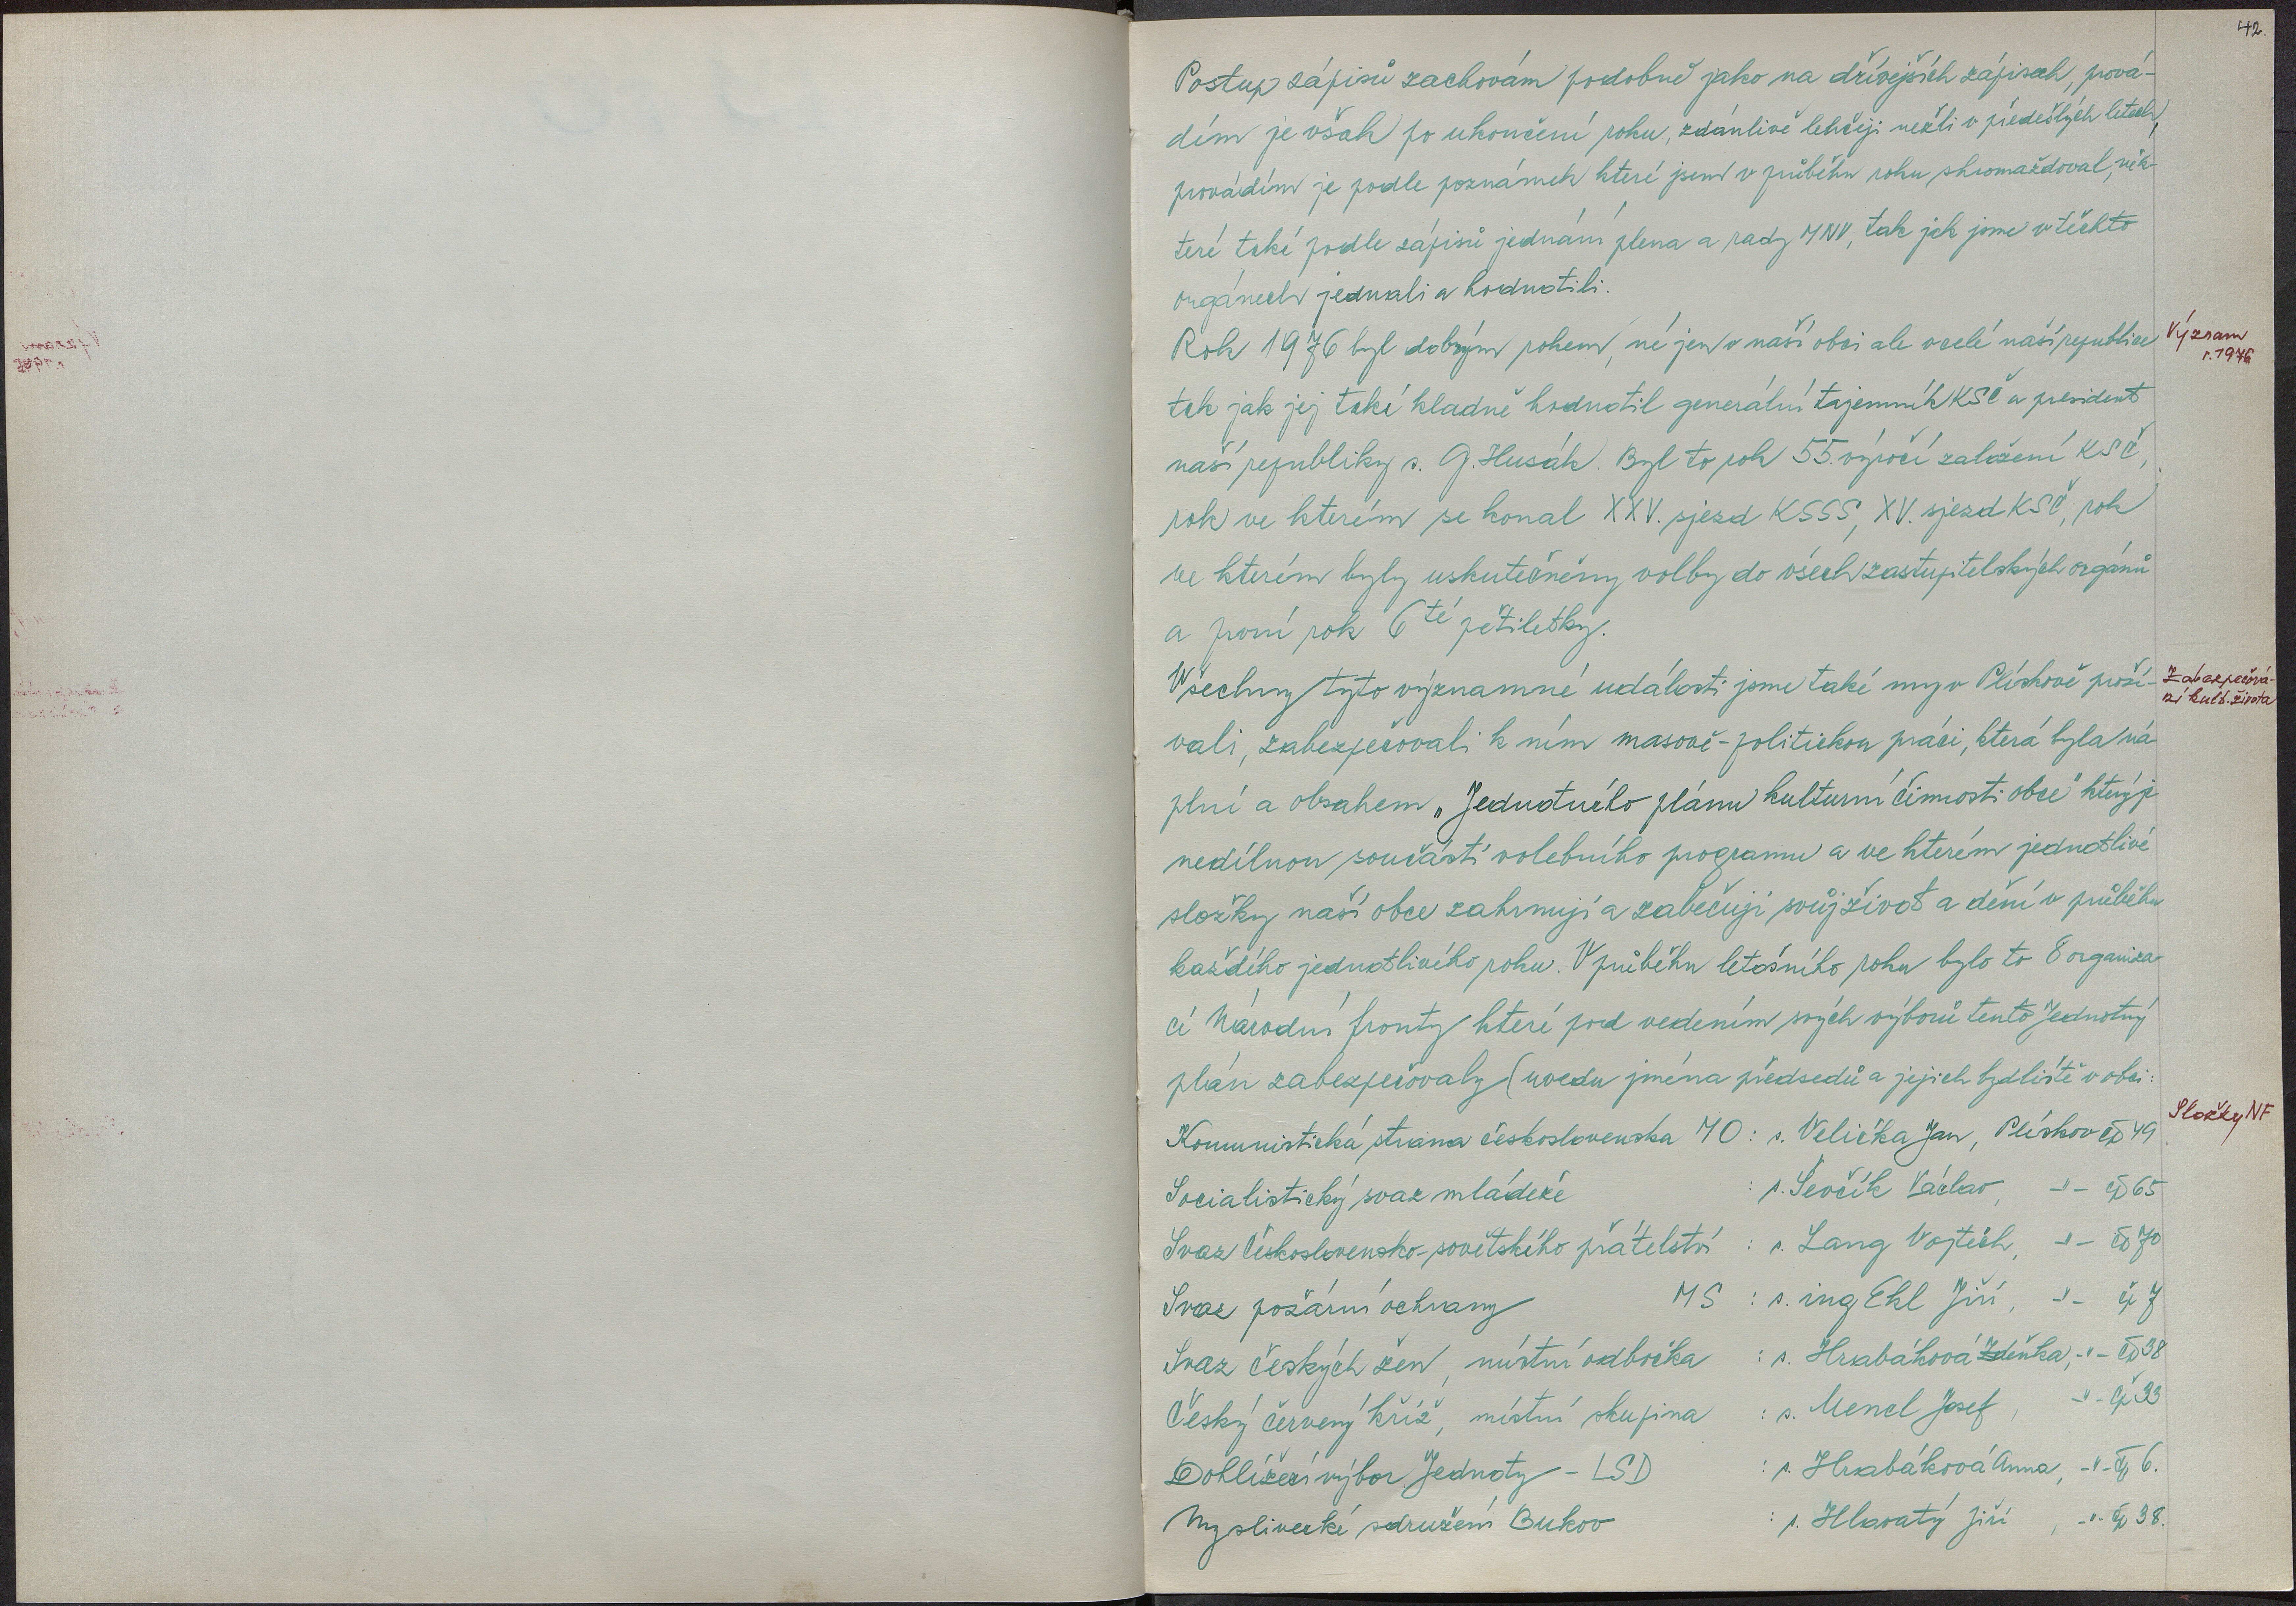 42.
Postup zápisů zachovám podobně jako na dřívějších zápisech, prová-
dím je však po ukončení roku, zdánlivě lehčeji nežli v předešlých letech,
provádím je podle poznámek které jsem v průběhu roku shromažďoval, něk-
teré také podle zápisů jednání plena a rady MNV, tak jak jsme v těchto
orgánech jednali a hodnotili.
Rok 1976 byl dobrým rokem, né jen v naší obci ale v celé naší republice
Význam
r. 1976
tak jak jej také kladně hodnotil generální tajemník KSČ a president
naší republiky s. G. Husák. Byl to rok 55. výročí založení KSČ,
rok ve kterém se konal XXV. sjezd KSSS, XV. sjezd KSČ, rok
ve kterém byly uskutečněny volby do všech zastupitelských orgánů
a první rok 6té pětiletky.
Všechny tyto významné události jsme také my v Plískově proží-
Zabezpečová-
ní kult. života
vali, zabezpečovali k ním masově-politickou práci, která byla ná
plní a obsahem „Jednotného plánu kulturní činnosti obce" který je
nedílnou součástí volebního programu a ve kterém jednotlivé
složky naší obce zahrnují a zabečují svůj život a dění v průběhu
každého jednotlivého roku. V průběhu letošního roku bylo to 8 organiza
cí Národní fronty které pod vedením svých výborů tento Jednotný
plán zabezpečovaly (uvedu jména předsedů a jejich bydliště v obci:
Složky NF
Komunistická strana československa MO : s. Velička Jan, Plískov čp 49
Socialistický svaz mládeže : s. Ševčík Václav, -"- čp 65
Svaz Československo-sovětského přátelství : s. Lang Vojtěch, -"- čp 70
Svaz požární ochrany MS : s. ing Ekl Jiří, -"- čp 7
Svaz českých žen, místní odbočka : s. Hrabáková Zdeňka, -"- čp 38
Český červený kříž, místní skupina : s. Mencl Josef, -"- čp 33
Dohlížecí výbor Jednoty - LSD : s. Hrabáková Anna, -"- čp 6.
Myslivecké sdružení Bukov : s. Hlavatý Jiří, -"- čp 38.